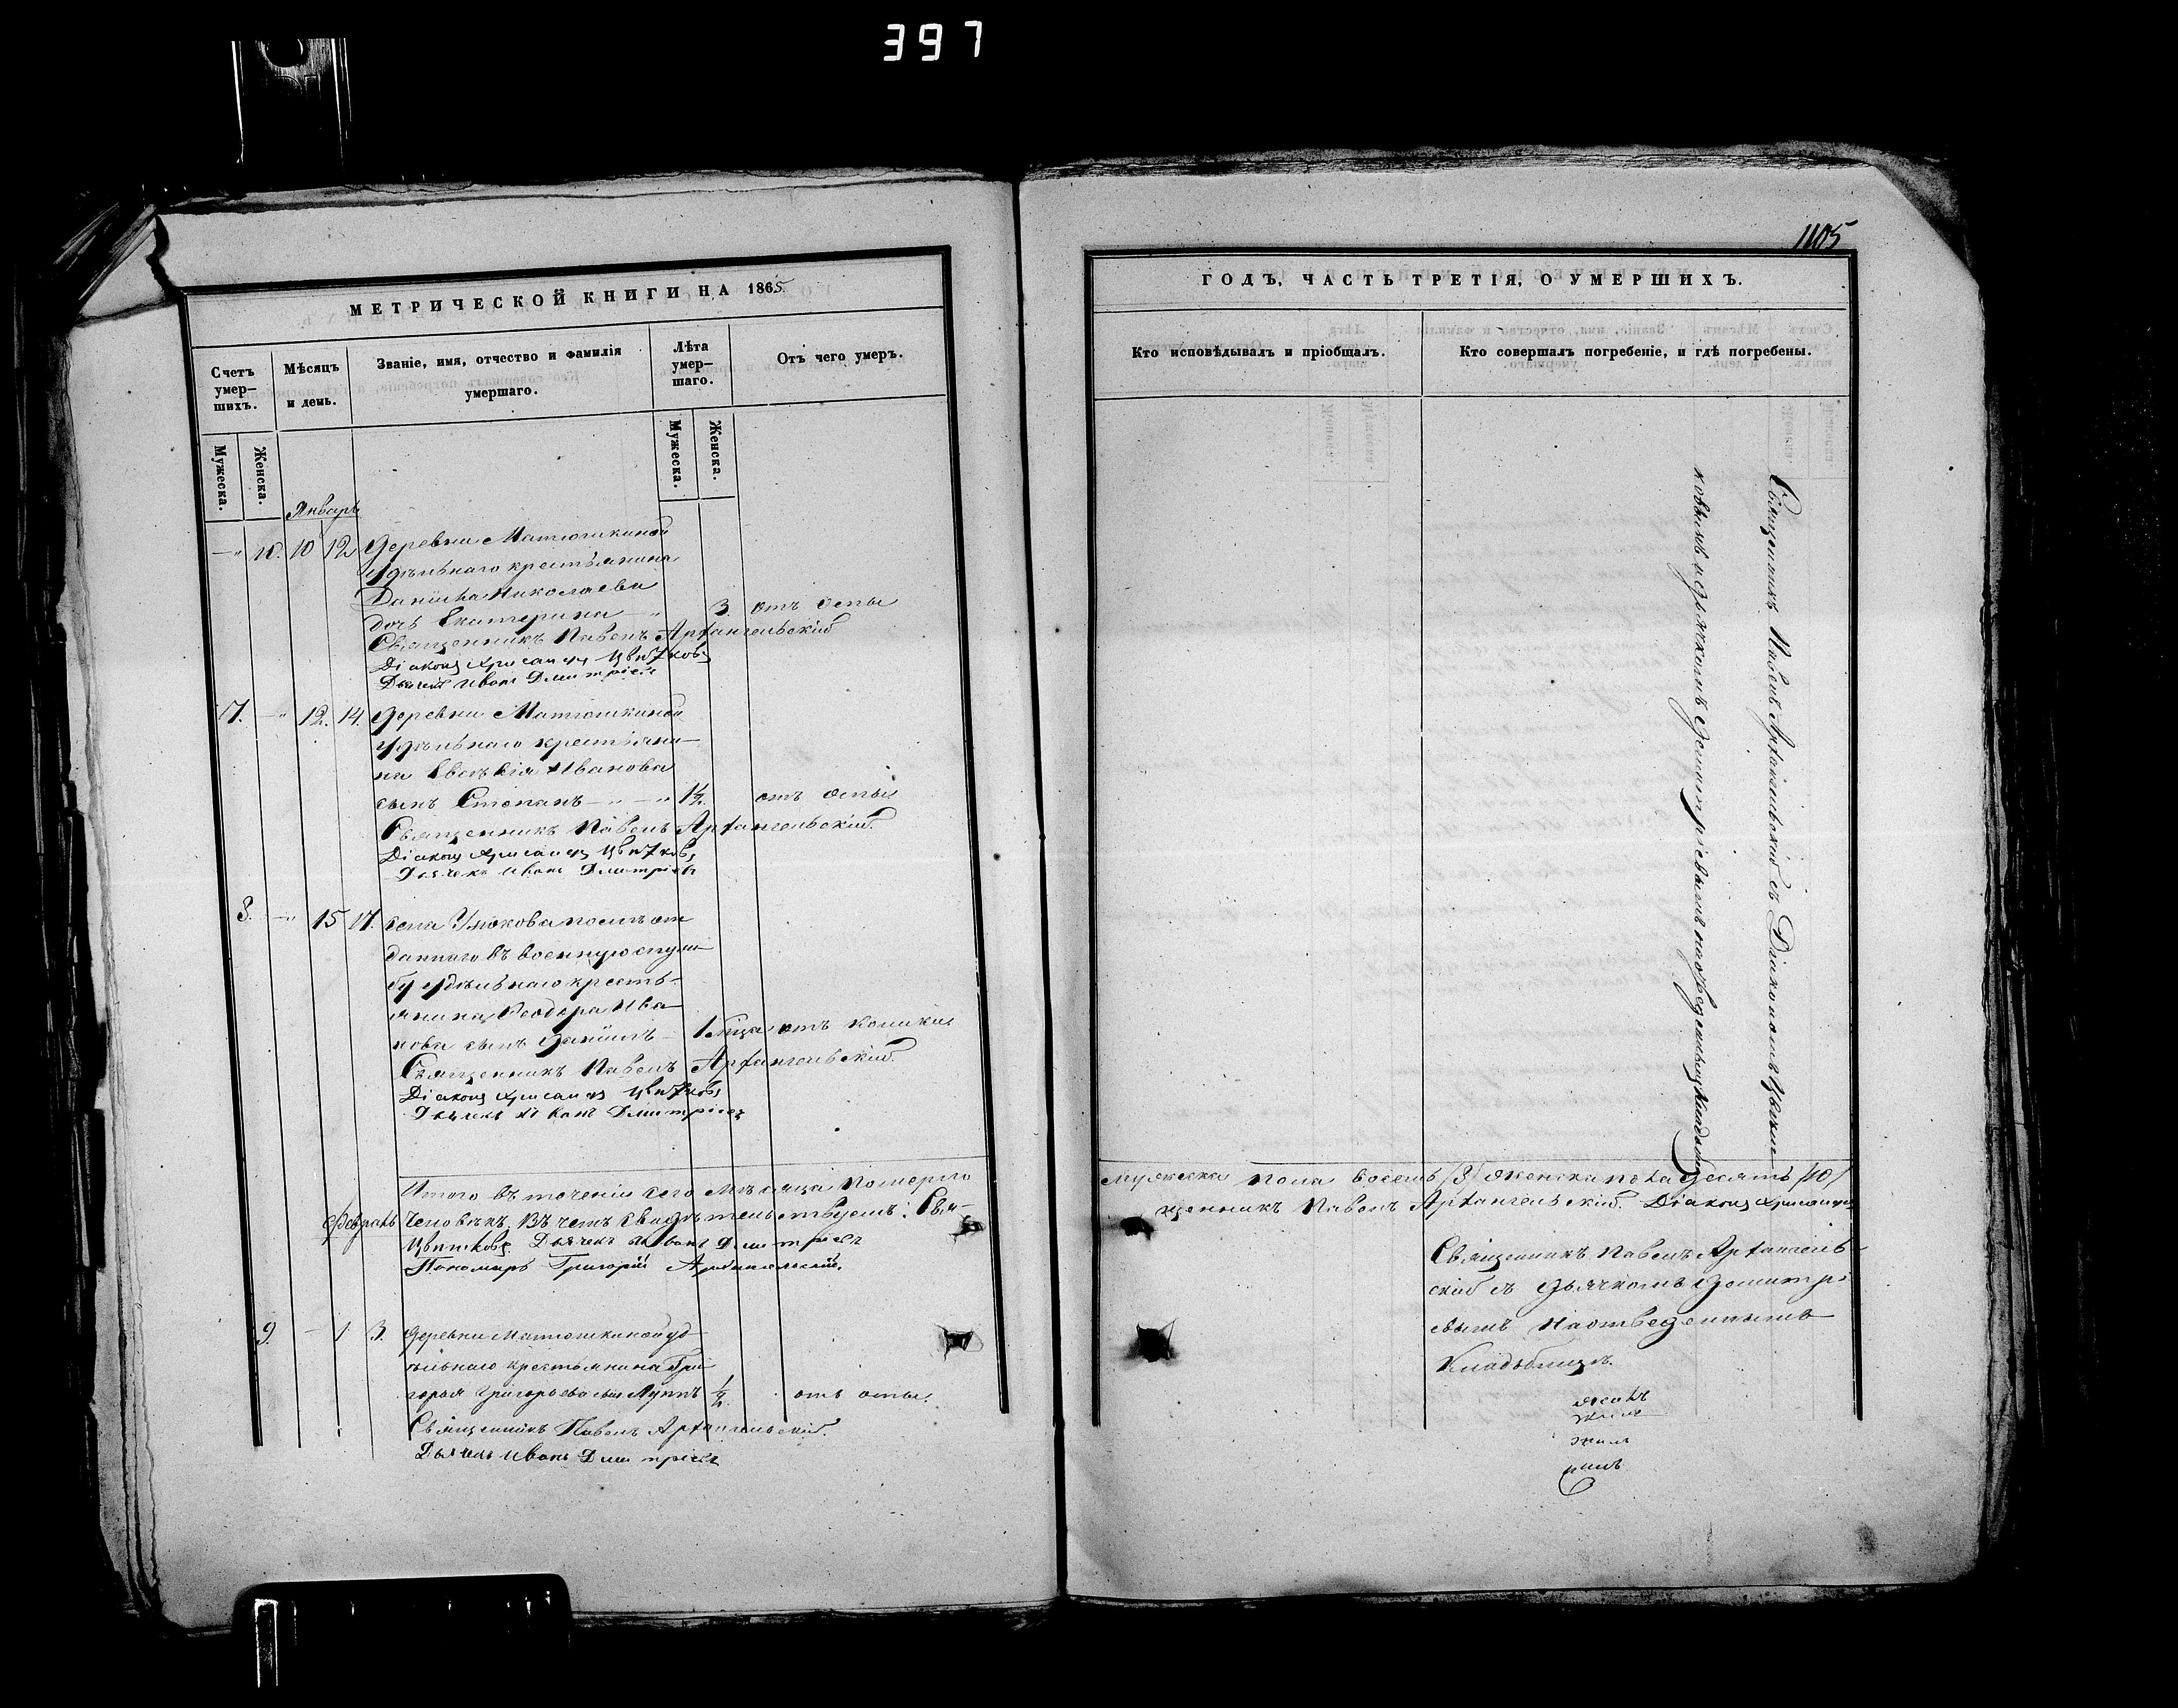 397
1105
МЕТРИЧЕСКОЙ КНИГИ НА 1865
Счетъ умер–шихъ.
Мѣсяцъ и день.
Званіе, имя, отчество и фамилія умершаго.
Лѣта умер–шаго.
Отъ чего умеръ.
Мужеска.
Женска.
Мужеска.
Женска.
Январь
—„ 10. 10 12 Деревни Матюшкиной
удѣльнаго крестьянина
Даніила Николаева
дочь Екатерина —„ 3 отъ оспы
Священникъ Павелъ Архангельскій
Діаконъ Хрисанфъ Цвѣтковъ
Дьячекъ Иванъ Дмитріевъ
7. —„ 12. 14. Деревни Матюшкиной
удѣльнаго крестьяни–
на Иванова
сынъ Стефанъ —„—„ 1½. отъ оспы
Священникъ Павелъ Архангельскій.
Діаконъ Хрисанфъ Цвѣтковъ
Дьячекъ Иванъ Дмитріевъ
8. —„ 15 17. села от
даннаго въ военную служ
бу удѣльнаго кресть–
янина Ѳеодора Ива
нова сынъ Даніилъ — 1 отъ колики
Священникъ Павелъ Архангельскій.
Діаконъ Хрисанфъ Цвѣтковъ
Дьячекъ Иванъ Дмитріевъ
Итого въ теченіи сего Мѣсяца померло
Февраль человѣкъ. Въ чемъ свидѣтельствуемъ: Свя–
Цвѣтковъ Дьячекъ Иванъ Дмитріевъ
Пономарь Григорій Архангельскій.
9. — 1 3. Деревни Матюшкиной уд
ѣльнаго крестьянина Гри
горія Григорьева сынъ ½. отъ оспы.
Священникъ Павелъ Архангельскій.
Дьячекъ Иванъ Дмитріевъ
ГОДЪ, ЧАСТЬ ТРЕТІЯ, О УМЕРШИХЪ.
Кто исповѣдывалъ и пріобщалъ.
Кто совершалъ погребеніе, и гдѣ погребены.
Священникъ Павелъ Архангельскій съ Діакономъ Цвѣт
ковымъ и дьячкомъ Дмитріевымъ на отведенномъ кладбищѣ
мужеска пола восемь /8/ женска пола десять /10/
щенникъ Павелъ Архангельскій. Діаконъ Хрисанфъ
Священникъ Павелъ Архангель–
скій съ дьячкомъ Дмитрі
евымъ на отведенномъ
кладбищѣ.